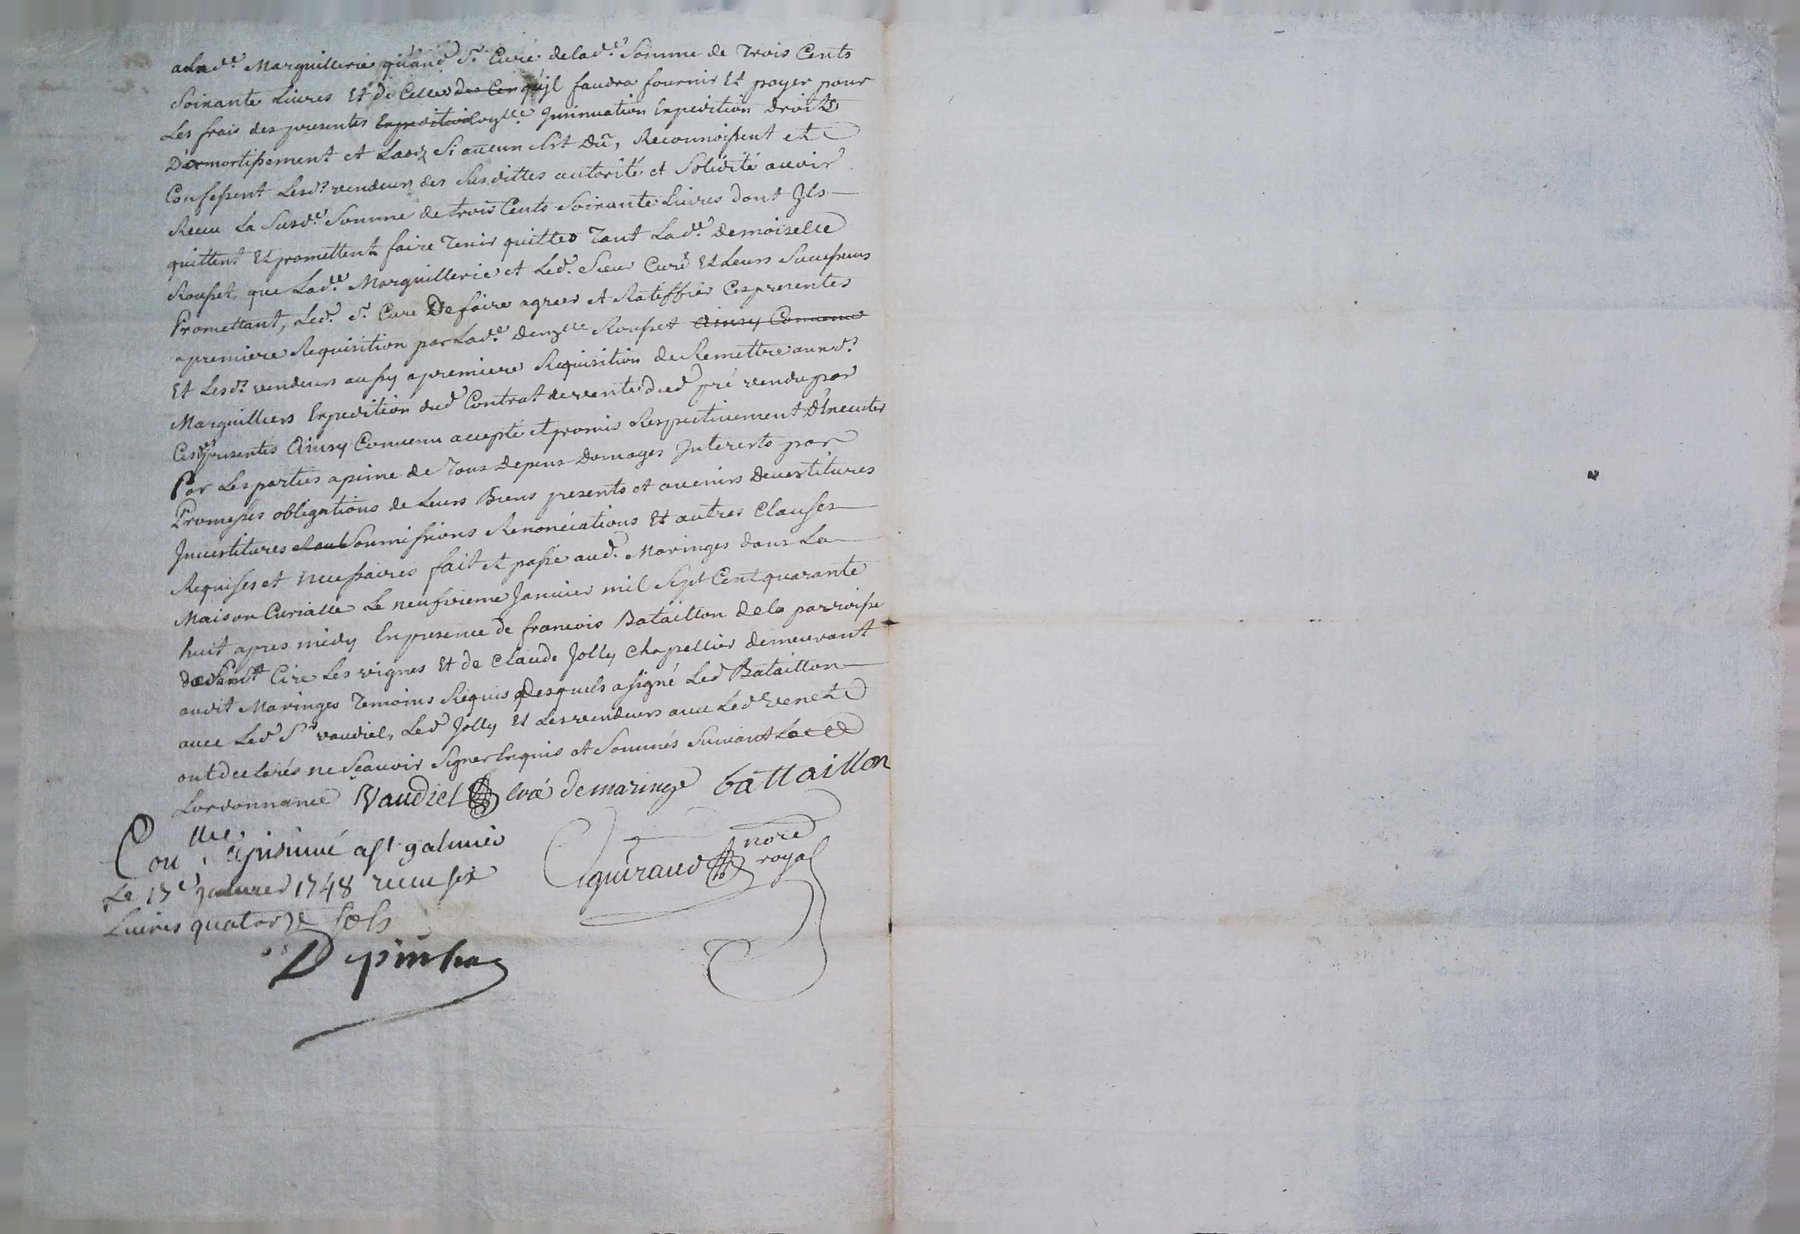 a lad.e Marguillerie qu'aud. Sr. Curé de lad.e Somme de Trois Cents
Soixante Livres Et de Celles qu'jl faudra fournir Et payer pour
Les frais des presentes Insinuation Expedition droits
D'amortissement et Laodz Si aucun Est Dû, Reconnoissent et
Confessent Lesd.s vendeurs des Susdittes autorité et Solidité avoir
Receu La Susd.e Somme de trois Cents Soixante Livres dont Jls
quittent Et promettent faire Tenir quitte Tant Lad.e demoiselle
Rousset que Lad.e Marguillerie et Led. Sieur Curé Et Leurs Successeurs
Promettant, Led. Sr. Curé De faire agreer et Rateffier Ces presentes
a premiere Requisition par Lad.e demzlle Rousset ainsy Convenu
Et Lesd.s vendeurs aussy a premiere Requisition de Remettre auxd.s
Marguilliers Expedition dud. Contrat de vente dud. pré vendu par
Cesd. presentes Ainsy Convenu accepté et promis Respectivement D'Executer
Par Les parties a peine de Tous depens Domages Interests par
Promesses obligations de Leurs Biens presents et avenirs Devestitures
Jnvestitures Soumissions Renonciations Et autres Clauses
Requises et necessaires fait et passé aud. Maringes dans La
Maison Curialle Le neufvieme Janvier mil Sept Cent quarante
huit apres midy En presence de francois Bataillon de la parroisse
de Saint Cire Les vignes Et de Claude Jolly Chapellier demeurant
audit Maringes Temoins Requis Desquels a signé Led. Bataillon
avec Led. Sr. Vaudiel, Led. Jolly Et Les vendeurs avec Led. Venet
ont declarés ne Scavoir Signer Enquis et Sommés Suivant
Lordonnance Vaudiel curé de maringe battaillon
Con.lle et jnsinué a St galmier
Le 17.e janvier 1748 receu six
Livres quatorze sols
guiraud nore royal